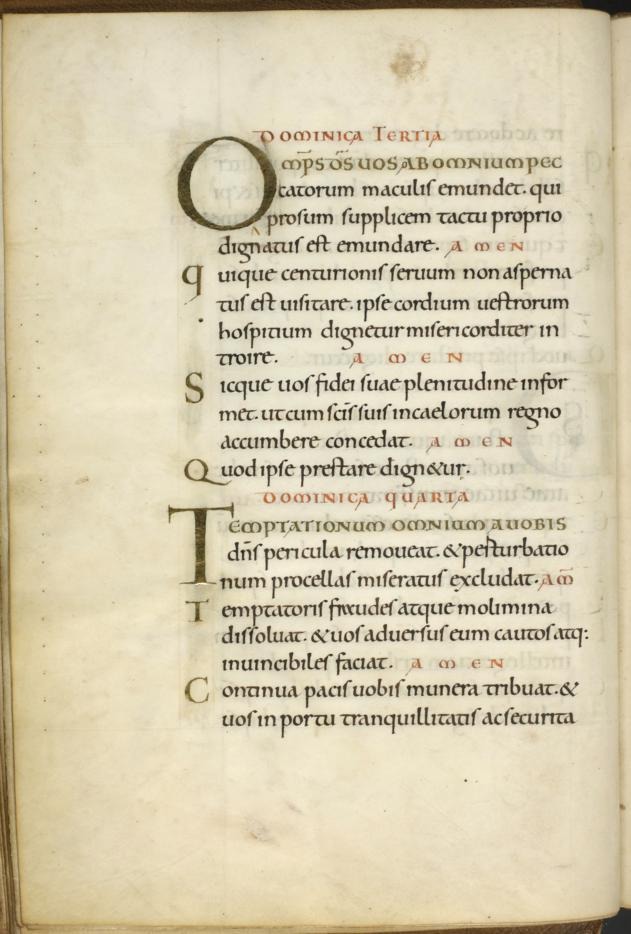 DOMINICA TERTIA
OMP̄S D̄S UOS AB OMNIUM PEC
catorum maculis emundet. qui
leprosum supplicem tactu proprio
dignatus est emundare. AMEN
Quique centurionis seruum non asperna
tus est uisitare. ipse cordium uestrorum
hospitium dignetur misericorditer in
troire. AMEN
Sicque uos fidei suae plenitudine infor
met. ut cum sc̄is suis in caelorum regno
accumbere concedat. AMEN
Quod ipse prestare dign&ur.
DOMINICA QUARTA
TEMPTATIONUM OMNIUM A UOBIS
dn̄s pericula remoueat. & perturbatio
num procellas miseratus excludat. AM̄
Temptatoris fraudes atque molimina
dissoluat. & uos aduersus eum cautos atq:
inuincibiles faciat. AMEN
Continua pacis uobis munera tribuat. &
uos in portu tranquillitatis ac securita